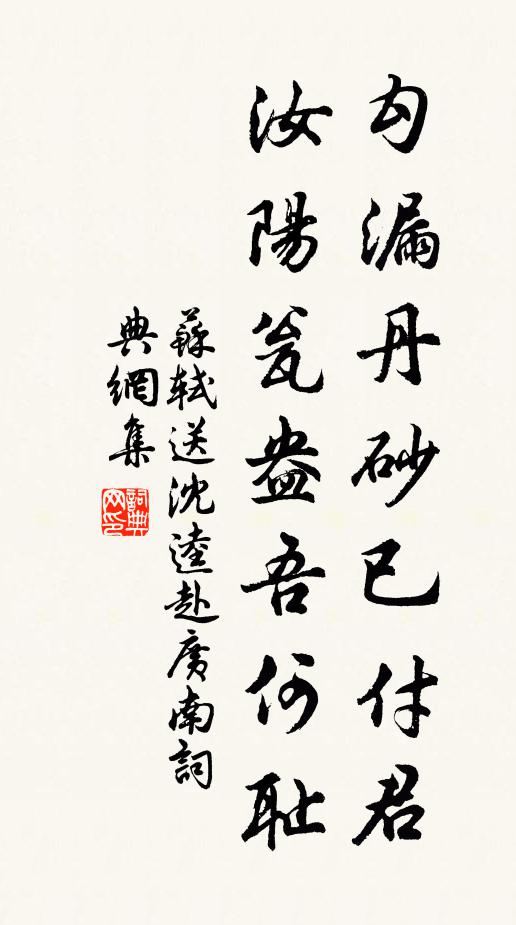 勾漏丹砂已付君
汝陽瓮盎吾何耻
蘇軾送沈逵赴廣南詞
典網集
詞典網印